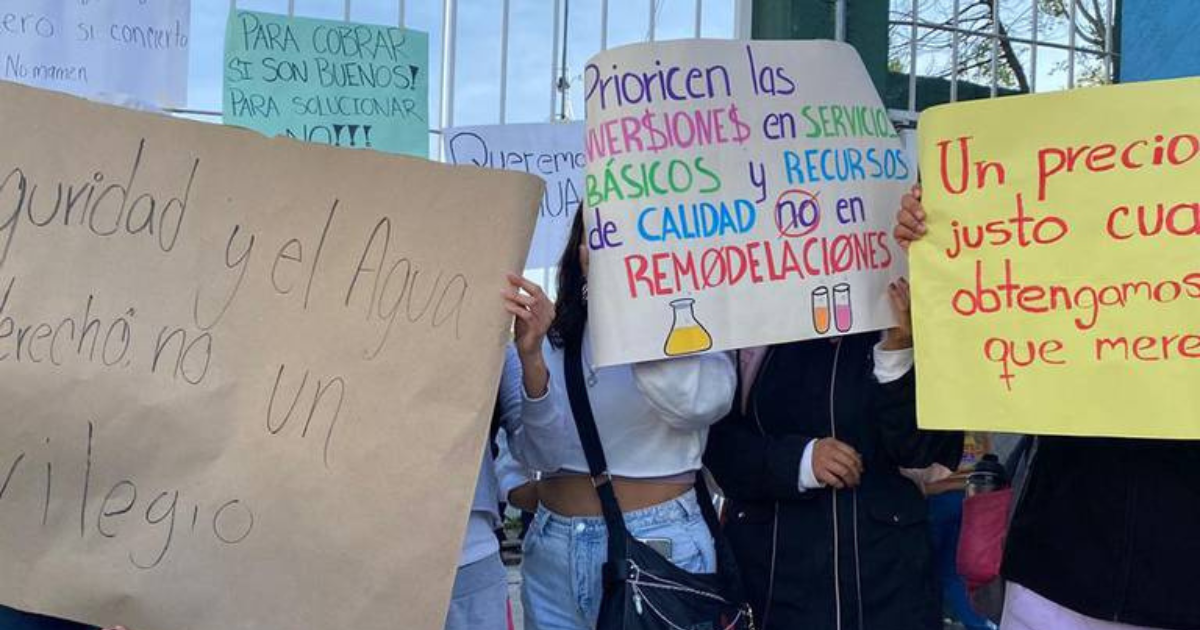 ero si concierto
No mamen
PARA COBRAR
SI SON BUENOS!
PARA SOLUCIONAR
NO!!!
Queremo
UA
guridad y el Agua
derecho, no un
vilegio
Prioricen las
NVER$IONE$ en SERVICIOS
BÁSICOS y RECURSOS
de CALIDAD no en
REMØDELACIØNES
Un precio
justo cua
obtengamos
que mere